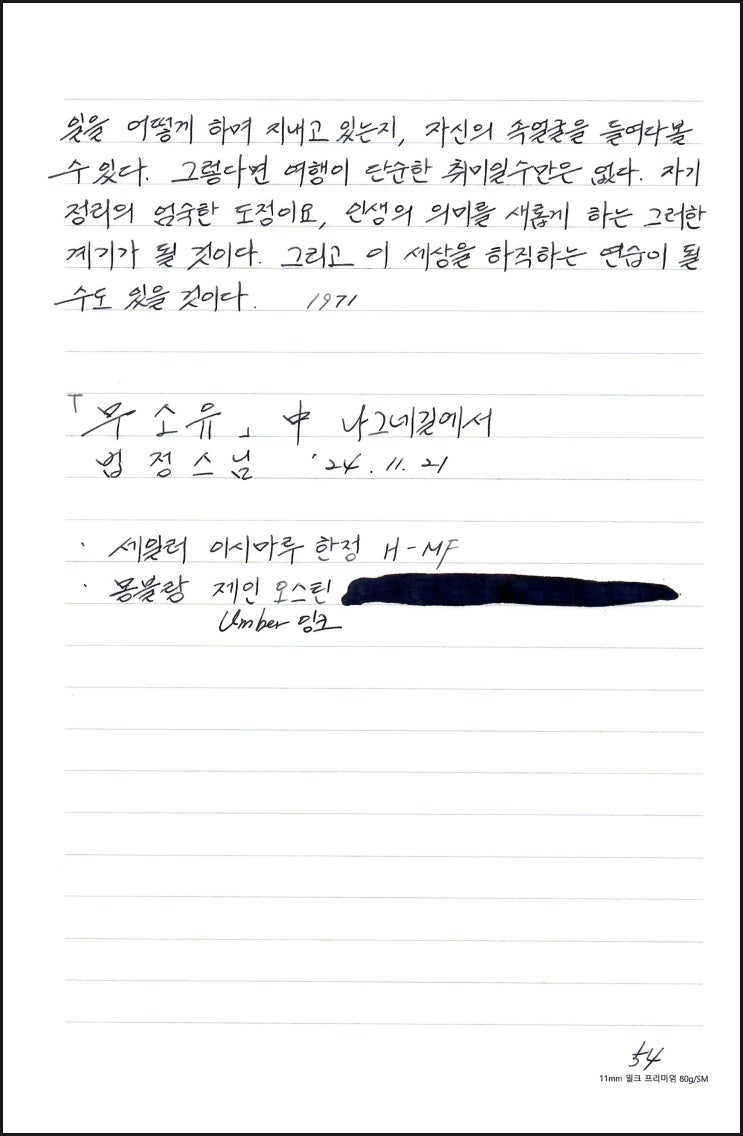 일을 어떻게 하며 지내고 있는지, 자신의 속얼굴을 들여다볼
수 있다. 그렇다면 여행이 단순한 취미일수만은 없다. 자기
정리의 엄숙한 도정이요, 인생의 의미를 새롭게 하는 그러한
계기가 될 것이다. 그리고 이 세상을 하직하는 연습이 될
수도 있을 것이다. 1971
「무소유」 中 나그네길에서
법정스님 '24. 11. 21
· 세일러 이시마루 한정 H-MF
· 몽블랑 제인 오스틴
Umber 잉크
54
11mm 밀크 프리미엄 80g/SM